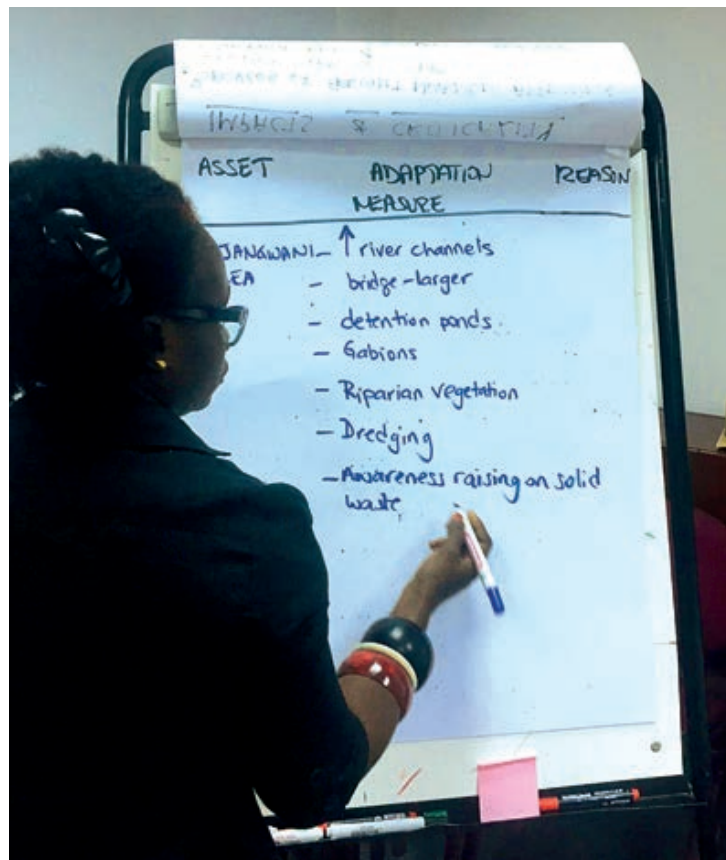 ASSET ADAPTATION REASON
MEASURE
JANGWANI – ↑ river channels
EA – bridge-larger
– detention ponds
– Gabions
– Riparian Vegetation
– Dredging
– Awareness raising on solid
waste